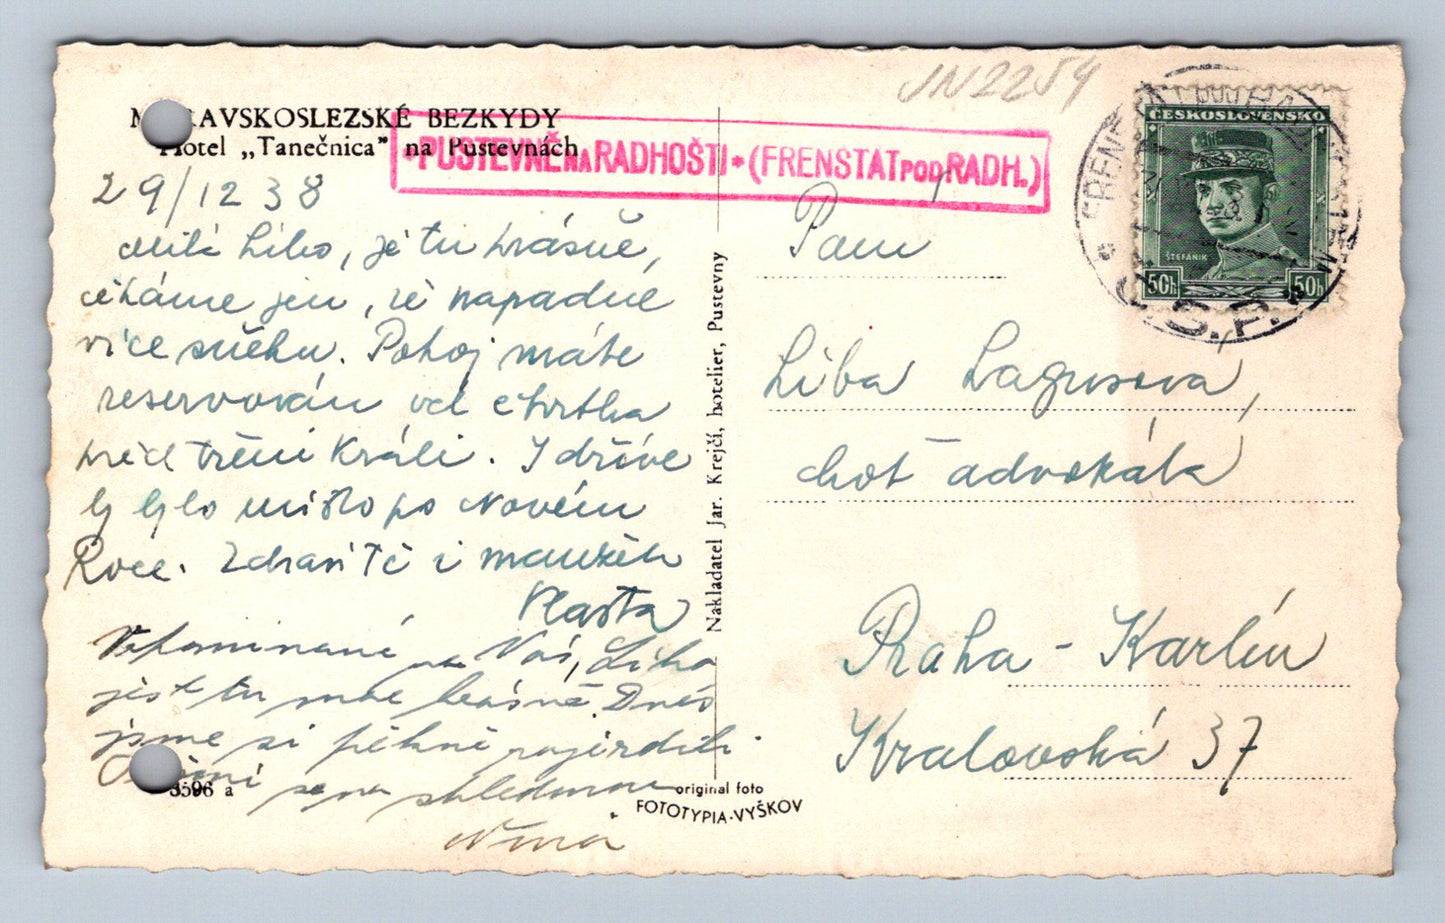 JN2254
MORAVSKOSLEZSKÉ BEZKYDY
Hotel „Tanečnica" na Pustevnách
PUSTEVNĚ NA RADHOŠTI • (FRENSTAT POD RADH.)
ČESKOSLOVENSKO
ŠTEFÁNIK
50h 50h
Č.S.P.
29/12 38
Milá Libo, je tu krásně,
čekáme jen, že napadne
více sněhu. Pokoj máte
reservován od čtvrtka
před třemi Králi. I dříve
by bylo místo po Novém
Roce. Zdraví Tě i manžela
Vlasta
Vzpomínáme na Vás, Libo
jest tu moc krásně. Dnes
jsme si pěkně zajezdili.
se na shledanou
Nina
Paní
Liba Lagusova,
choť advokáta
Praha - Karlín
Kralovská 37
Nakladatel Jar. Krejčí, hotelier, Pustevny
3596 a
original foto
FOTOTYPIA-VYŠKOV